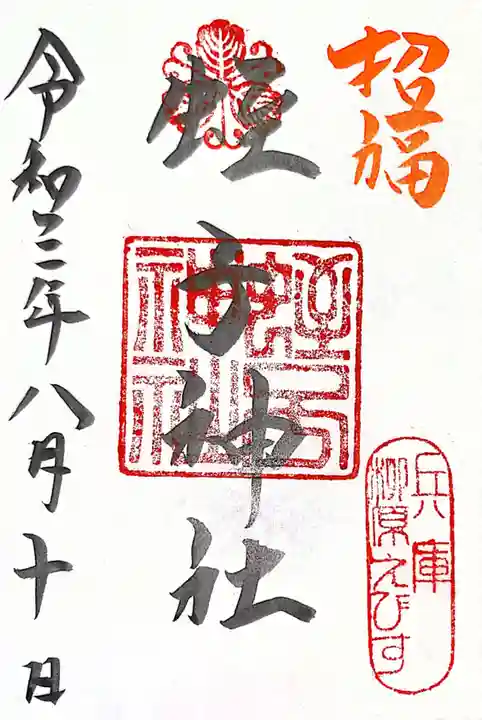 招福
兵庫
柳原えびす
蛭子神社
蛭子神社
令和三年八月十日